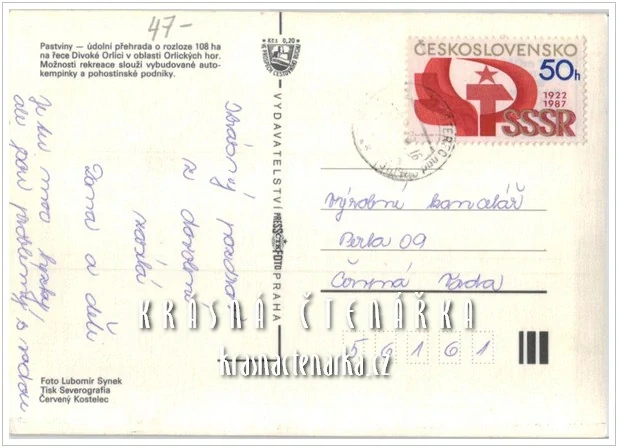 47-
Pastviny — údolní přehrada o rozloze 108 ha
na řece Divoké Orlici v oblasti Orlických hor.
Možnosti rekreace slouží vybudované auto-
kempinky a pohostinské podniky.
ČESKOSLOVENSKO
50h
1922
1987
SSSR
VYDAVATELSTVÍ PRESSFOTO PRAHA
Srdečný pozdrav
z dovolené
zasílá
a děti
Je tu moc hezky,
ale jsou problémy s
Výrobní kancelář
Perla 09
Česká
56161
KRÁSNÁ ČTENÁŘKA
krasnactenarka.cz
Foto Lubomír Synek
Tisk Severografia
Červený Kostelec